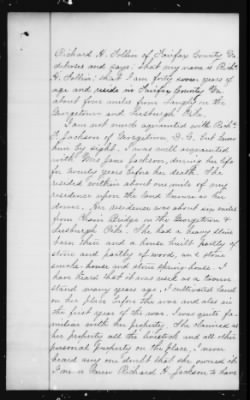 Richard H. Follin of Fairfax County Va
deposes and says: That my name is Richd
H. Follin; that I am forty seven years of
age and reside in Fairfax County Va
about four miles from Langley on the
Georgetown and Leesburgh Pike.
I am not much acquainted with Richd
H. Jackson of Georgetown, D.C. but know
him by sight. I was well acquainted
with Mrs Jane Jackson, during her life
for twenty years before her death. She
resided within about one mile of my
residence upon the land known as her
dower. Her residence was about six miles
from Chain Bridge on the Georgetown &
Leesburgh Pike. She had a heavy stone
barn there and a house built partly of
stone and partly of wood, and stone
smoke house and stone spring house. I
have heard that it was used as a tavern
stand many years ago. I cultivated land
on her place before the war and also in
the first year of the war. I was quite fa-
miliar with her property. She claimed as
her property all the livestock and all other
personal property on the place. I never
heard any one doubt that she owned it.
I never knew Richard H. Jackson to have